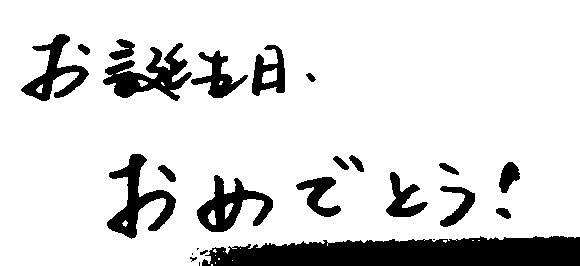 お誕生日、
おめでとう!